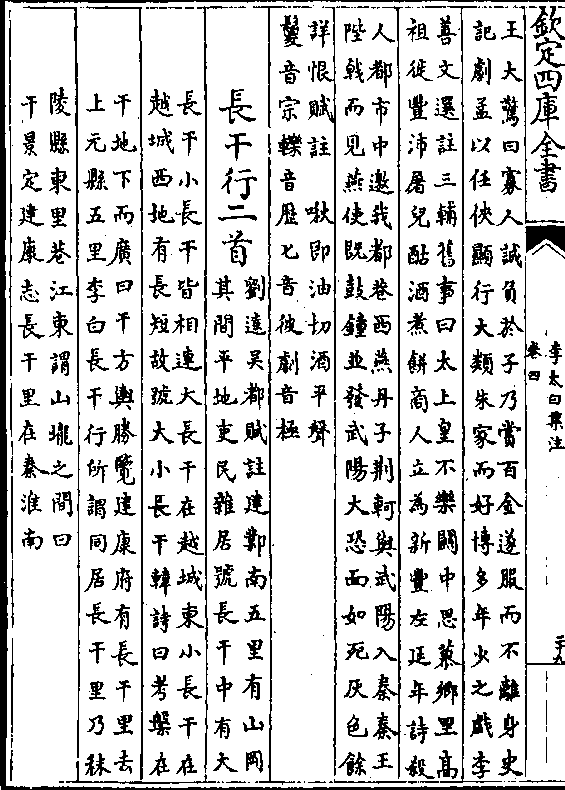 欽定四庫全書
李太白集注
卷四
二十九
王大驚曰寡人誠負於子乃賞百金遂服而不離身史
記劇孟以任俠顯行大類朱家而好博多年少之戲李
善文選註三輔舊事曰太上皇不樂關中思慕鄉里高
祖徙豐沛屠兒酤酒煮餅商人立為新豐左延年詩殺
人都市中邀我都巷西燕丹子荆軻與武陽入秦秦王
陛戟而見燕使既鼓鐘並發武陽大恐面如死灰色餘
詳恨賦註 啾即油切酒平聲
鬉音宗轢音歷匕音彼劇音極
長干行二首
劉逵吳都賦註建鄴南五里有山岡
其間平地吏民雜居號長干中有大
長干小長干皆相連大長干在越城東小長干在
越城西地有長短故號大小長干韓詩曰考槃在
干地下而廣曰干方輿勝覽建康府有長干里去
上元縣五里李白長干行所謂同居長干里乃秣
陵縣東里巷江東謂山壠之間曰
干景定建康志長干里在秦淮南